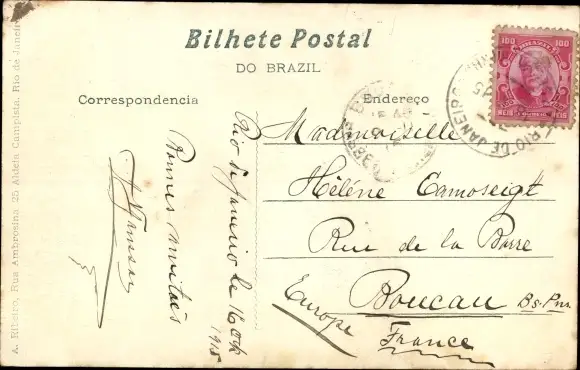 Bilhete Postal
DO BRAZIL
Correspondencia
Endereço
A. Ribeiro, Rua Ambrosina 25 Aldeia Campista. Rio de Janeiro
Rio de Janeiro le 16 Oct
1915
Bonnes amitiés
100
BRAZIL
100
REIS
REIS
RIO DE JANEIRO
Mademoiselle
Hélène Camoseigt
Rue de la Barre
Boucau Bs. Pyr
Europe
France